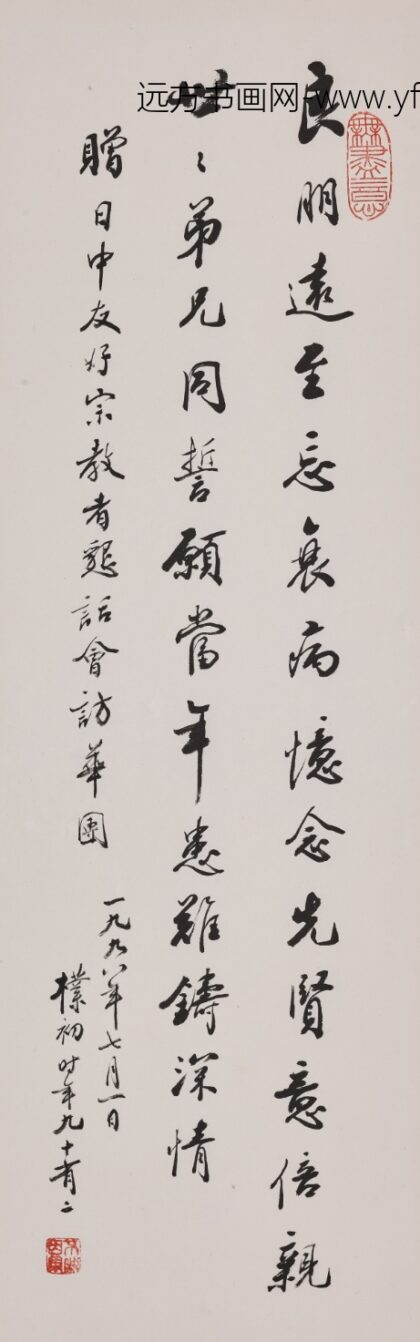 远方书画网-www.yf
無盡意
良朋遠至忘衰病憶念先賢意倍親
世〻弟兄同誓願當年患難鑄深情
贈日中友好宗教者懇話會訪華團
一九九八年七月一日
樸初時年九十有二